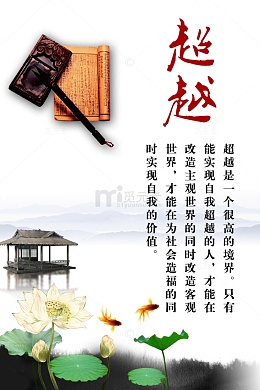 超越
超越是一个很高的境界。只有
能实现自我超越的人，才能在
改造主观世界的同时改造客观
世界，才能在为社会造福的同
时实现自我的价值。